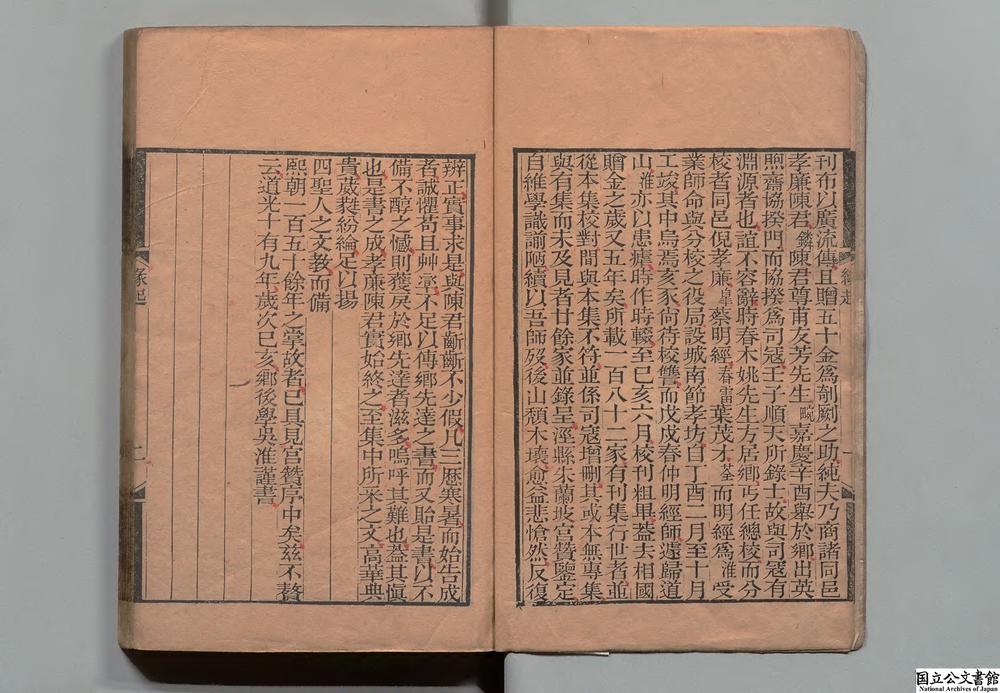 刊布以廣流傳且贈五十金爲剞劂之助純夫乃商諸同邑
孝廉陳君鱗陳君尊甫友芳先生畹嘉慶辛酉舉於鄉出英
煦齋協揆門而協揆爲司寇壬子順天所錄士故與司寇有
淵源者也誼不容辭時春木姚先生方居鄉丐任總校而分
校者同邑倪孝廉皐蔡明經春雷葉茂才荃而明經爲淮受
業師命與分校之役局設城南節孝坊自丁酉二月至十月
工竣其中烏焉亥豕尚待校讐而戊戌春仲明經師遽歸道
山淮亦以患瘧時作時輟至己亥六月校刊粗畢蓋去相國
贈金之歲又五年矣所載一百八十二家有刊集行世者並
從本集校對間與本集不符並係司寇增刪其或本無專集
與有集而未及見者廿餘家並錄呈涇縣朱蘭坡宫贊鑒定
自維學識譾陋續以吾師歿後山頹木壞愈益悲愴然反復
緣起
一
辨正實事求是與陳君齗齗不少假凡三歷寒暑而始告成
者誠懼苟且艸率不足以傳鄉先達之書而又貽是書以不
備不醇之憾則獲戾於鄉先達者滋多嗚呼其難也蓋其愼
也是書之成孝廉陳君實始終之至集中所采之文高華典
貴葳蕤紛綸足以揚
四聖人之文教而備
熙朝一百五十餘年之掌故者已具見宫贊序中矣茲不贅
云道光十有九年歲次己亥鄉後學吳淮謹書
緣起
二
国立公文書館
National Archives of Japan